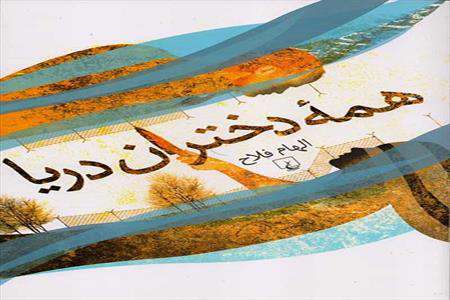 همهٔ دختران دریا
الهام فلاح